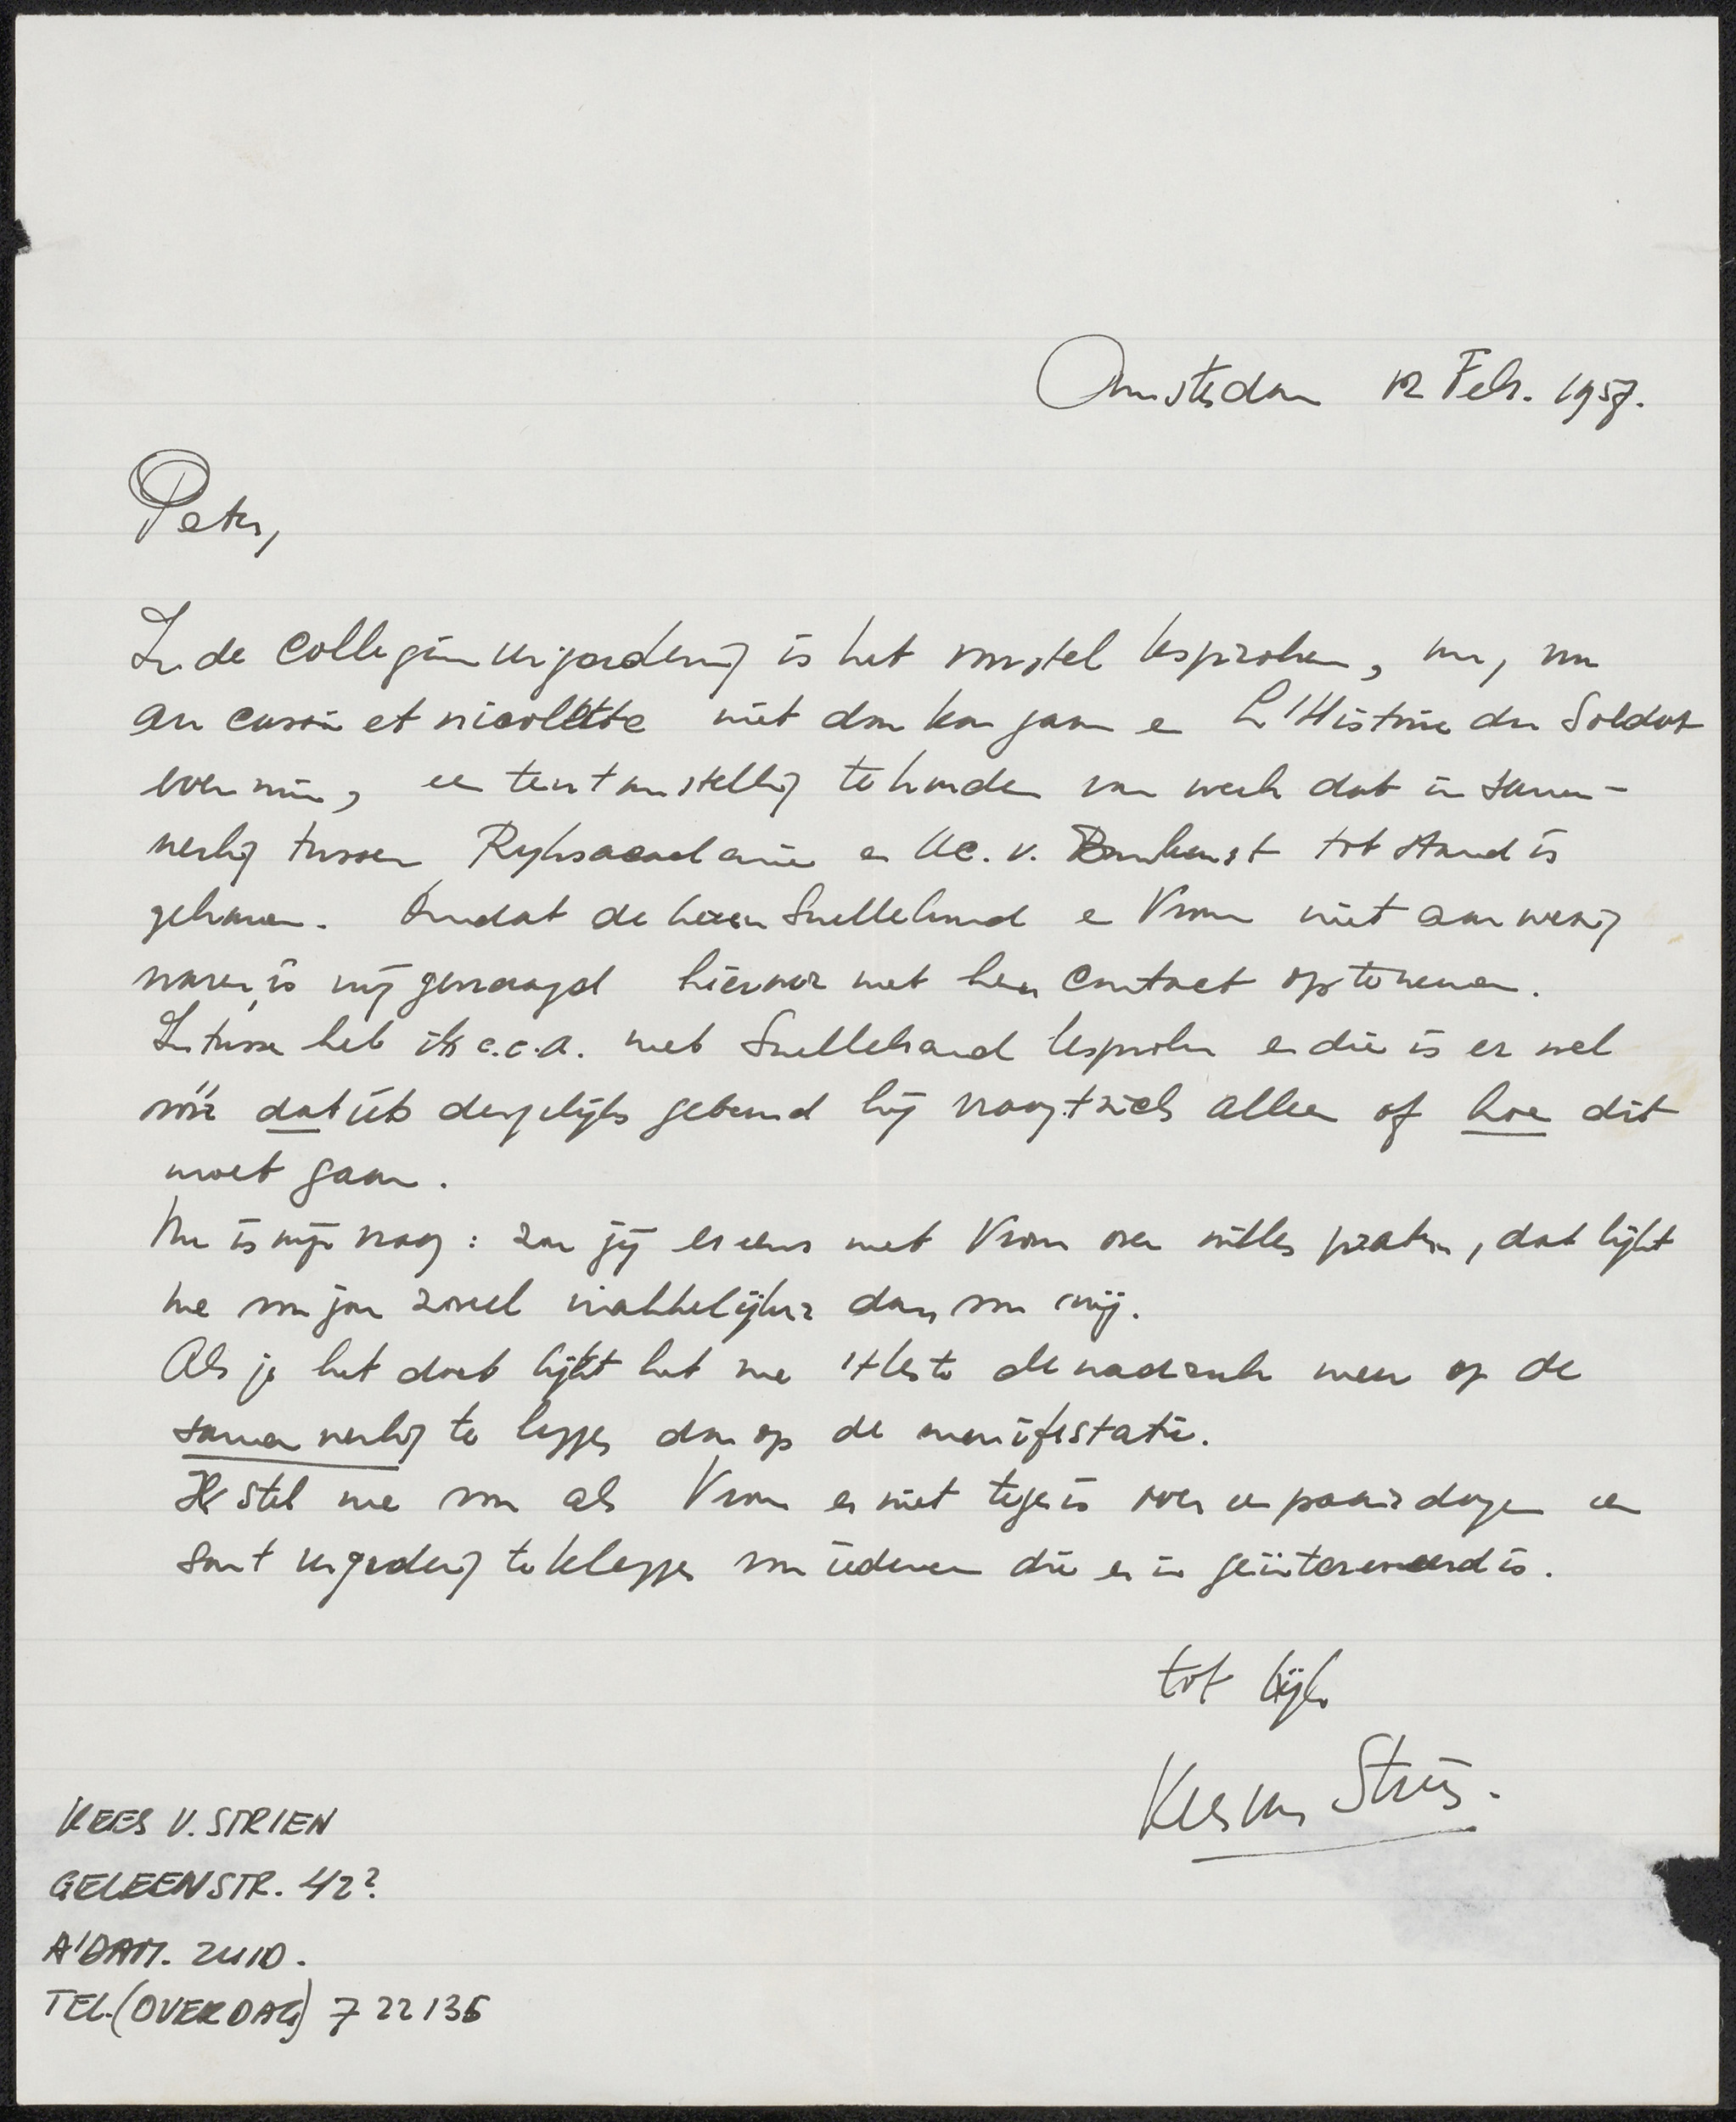 Amsterdam 12 Feb. 1957.
Peter,
In de collegianvergadering is het voorstel besproken, nu,
aucassin et nicolette niet door kan gaan en L'Histoire du Soldat
evenmin, een tentoonstelling te houden van werk dat in samen-
werking tussen Ryksacademie en Ac. v. Bouwkunst tot stand is
gekomen. Omdat de heren Snellebrand en Vrom niet aanwezig
waren, is mij gevraagd hierover met hen contact op te nemen.
Intussen heb ik e.e.a. met Snellebrand besproken en die is er wel
vóór dat iets dergelijks gebeurd hij vraagt zich alleen of hoe dit
moet gaan.
Nu is mijn vraag: zou jij er eens met Vrom over willen praten, dat lijkt
me voor jou zoveel makkelijker dan voor mij.
Als je het doet lijkt het me 't beste de nadruk meer op de
samenwerking te leggen dan op de manifestatie.
Ik stel me voor als Vrom er niet tegen is over een paar dagen een
soort vergadering te beleggen voor iedereen die er in geïnteresseerd is.
tot kijk
Kees van Strien.
KEES V. STRIEN
GELEENSTR. 42?
A'DAM. ZUID.
TEL. (OVERDAG) 722136